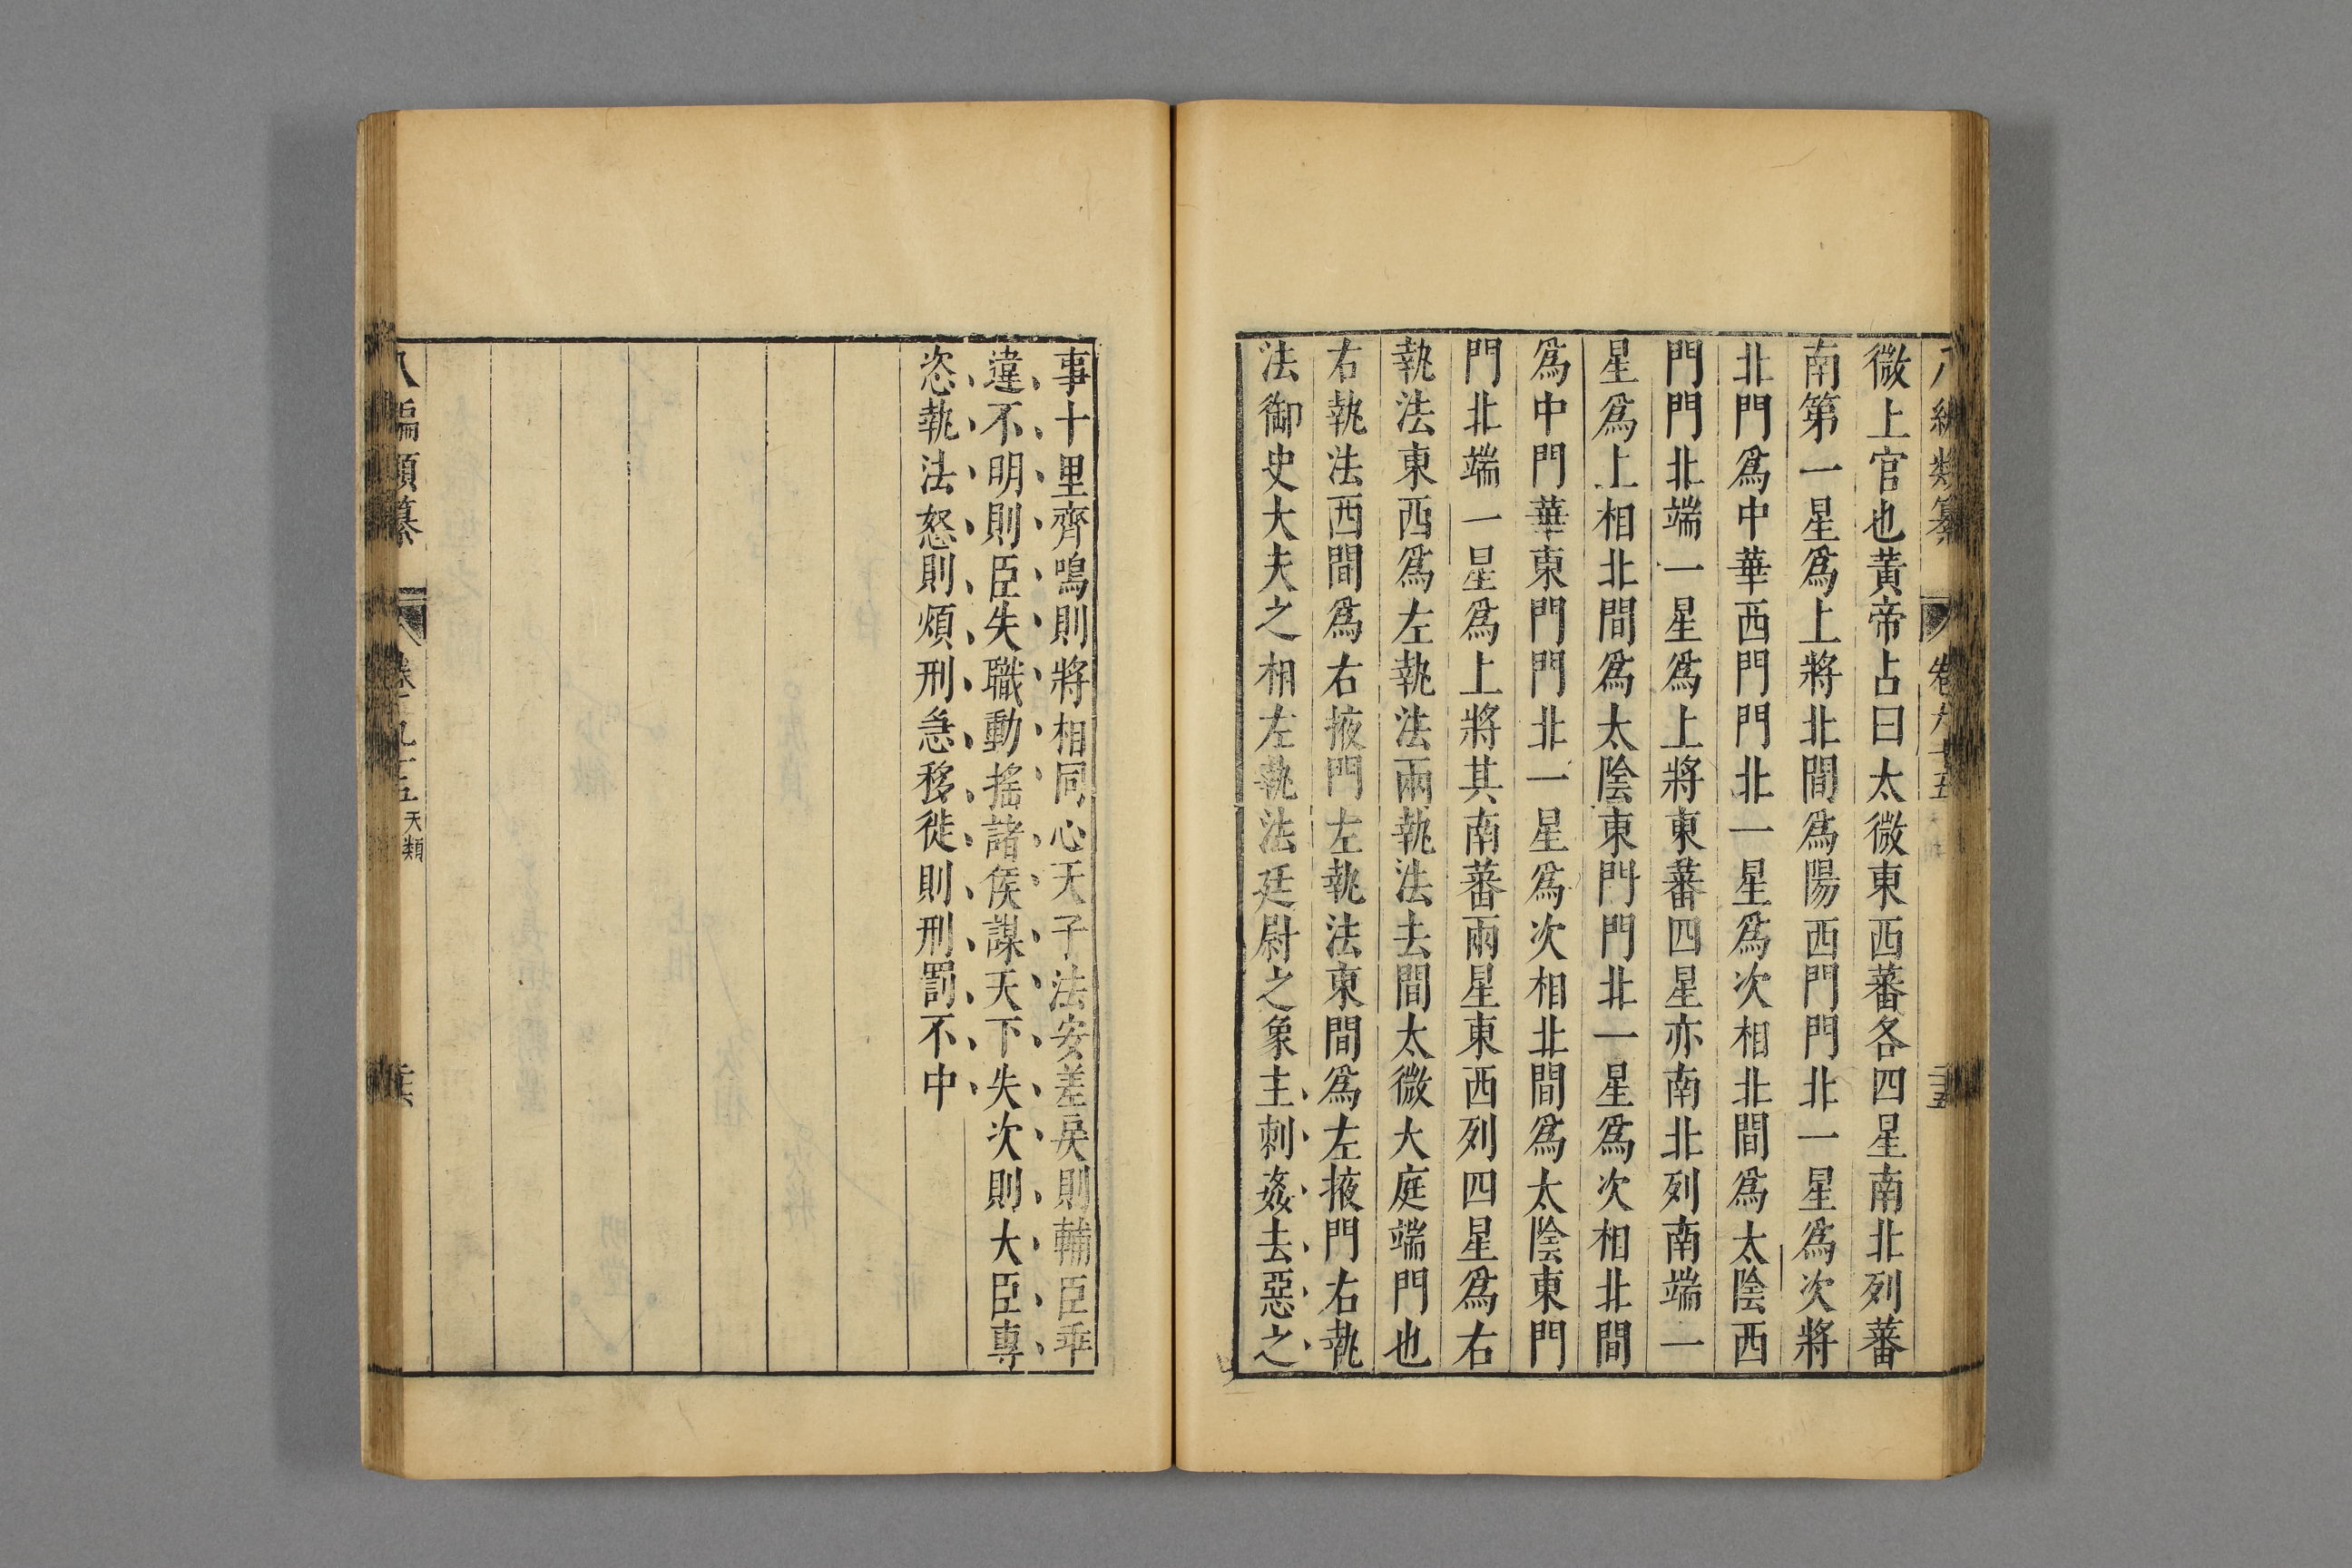 微上官也黃帝占曰太微東西蕃各四星南北列蕃
南第一星爲上將北間爲陽西門門北一星爲次將
北門爲中華西門門北一星爲次相北間爲太陰西
門門北端一星爲上將東蕃四星亦南北列南端一
星爲上相北間爲太陰東門門北一星爲次相北間
爲中門華東門門北一星爲次相北間爲太陰東門
門北端一星爲上將其南蕃兩星東西列四星爲右
執法東西爲左執法兩執法去間太微大庭端門也
右執法西間爲右掖門左執法東間爲左掖門右執
法御史大夫之相左執法廷尉之象主刺姦去惡之
事十里齊鳴則將相同心天子法安差戾則輔臣乖
違不明則臣失職動搖諸侯謀天下失次則大臣專
恣執法怒則煩刑急移徙則刑罰不中
八編類纂
天類